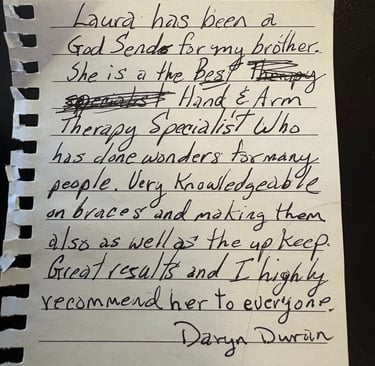 Laura has been a
God Send for my brother.
She is a the Best Therapy
specialist Hand & Arm
Therapy Specialist Who
has done wonders for many
people. Very Knowledgeable
on braces and making them
also as well as the up keep.
Great results and I highly
recommend her to everyone.
Daryn Duran